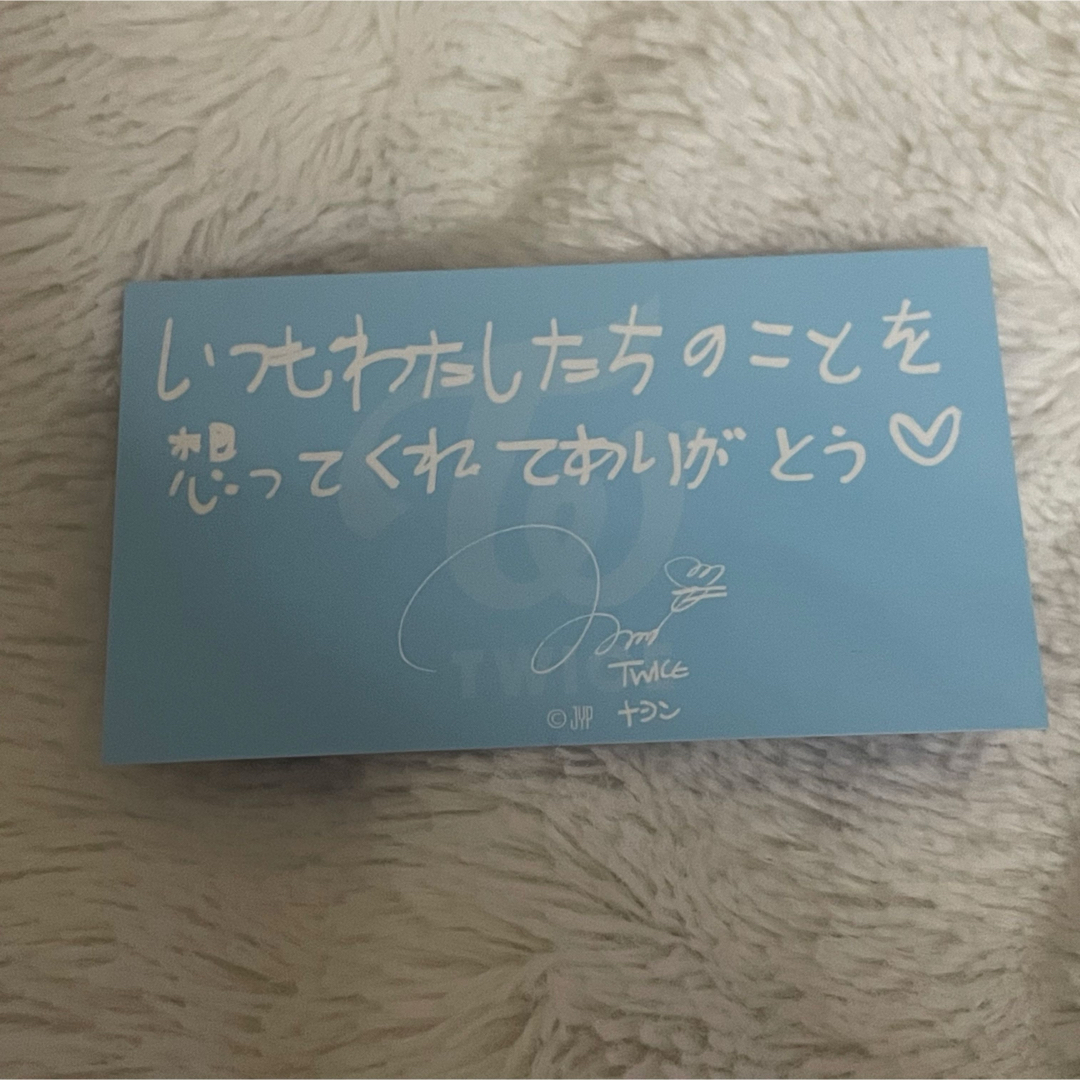 いつもわたしたちのことを
想ってくれてありがとう♡
TWICE
TWICE
©JYP ナヨン